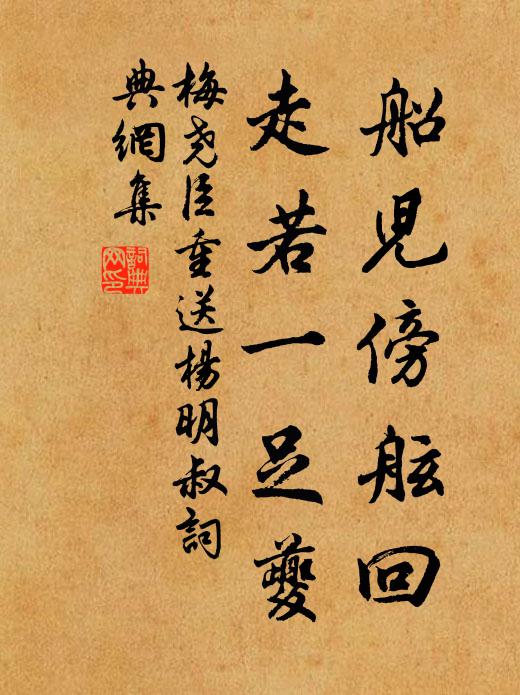 船児傍舷回
走若一足夔
梅尧臣重送楊明叔詞
典網集
詞典
网印